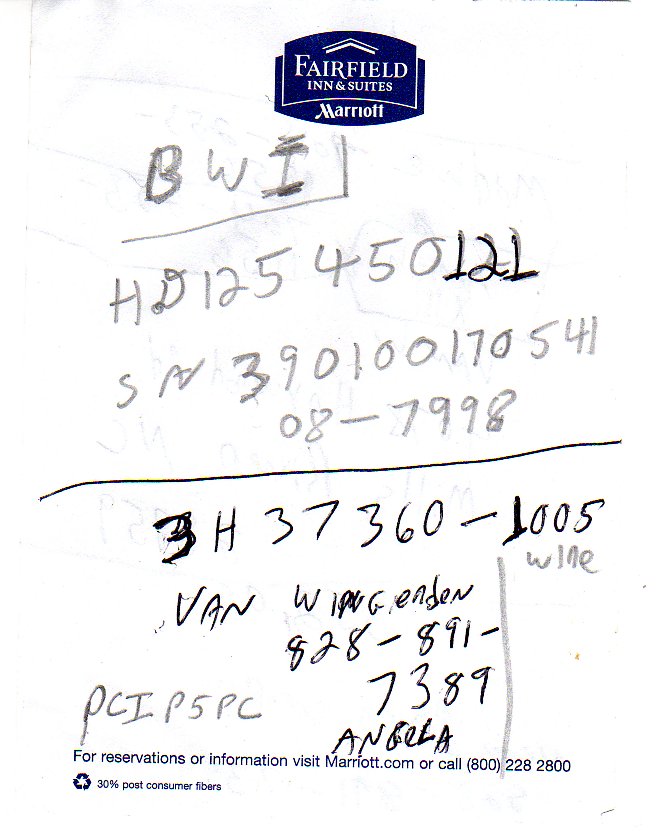 FAIRFIELD
INN & SUITES
Marriott
BWI
HD125 450121
SN 390100170541
08-7998
3H 37360-1005
wire
VAN WINGerden
828-891-
7389
PCIP5PC
ANGELA
For reservations or information visit Marriott.com or call (800) 228 2800
30% post consumer fibers